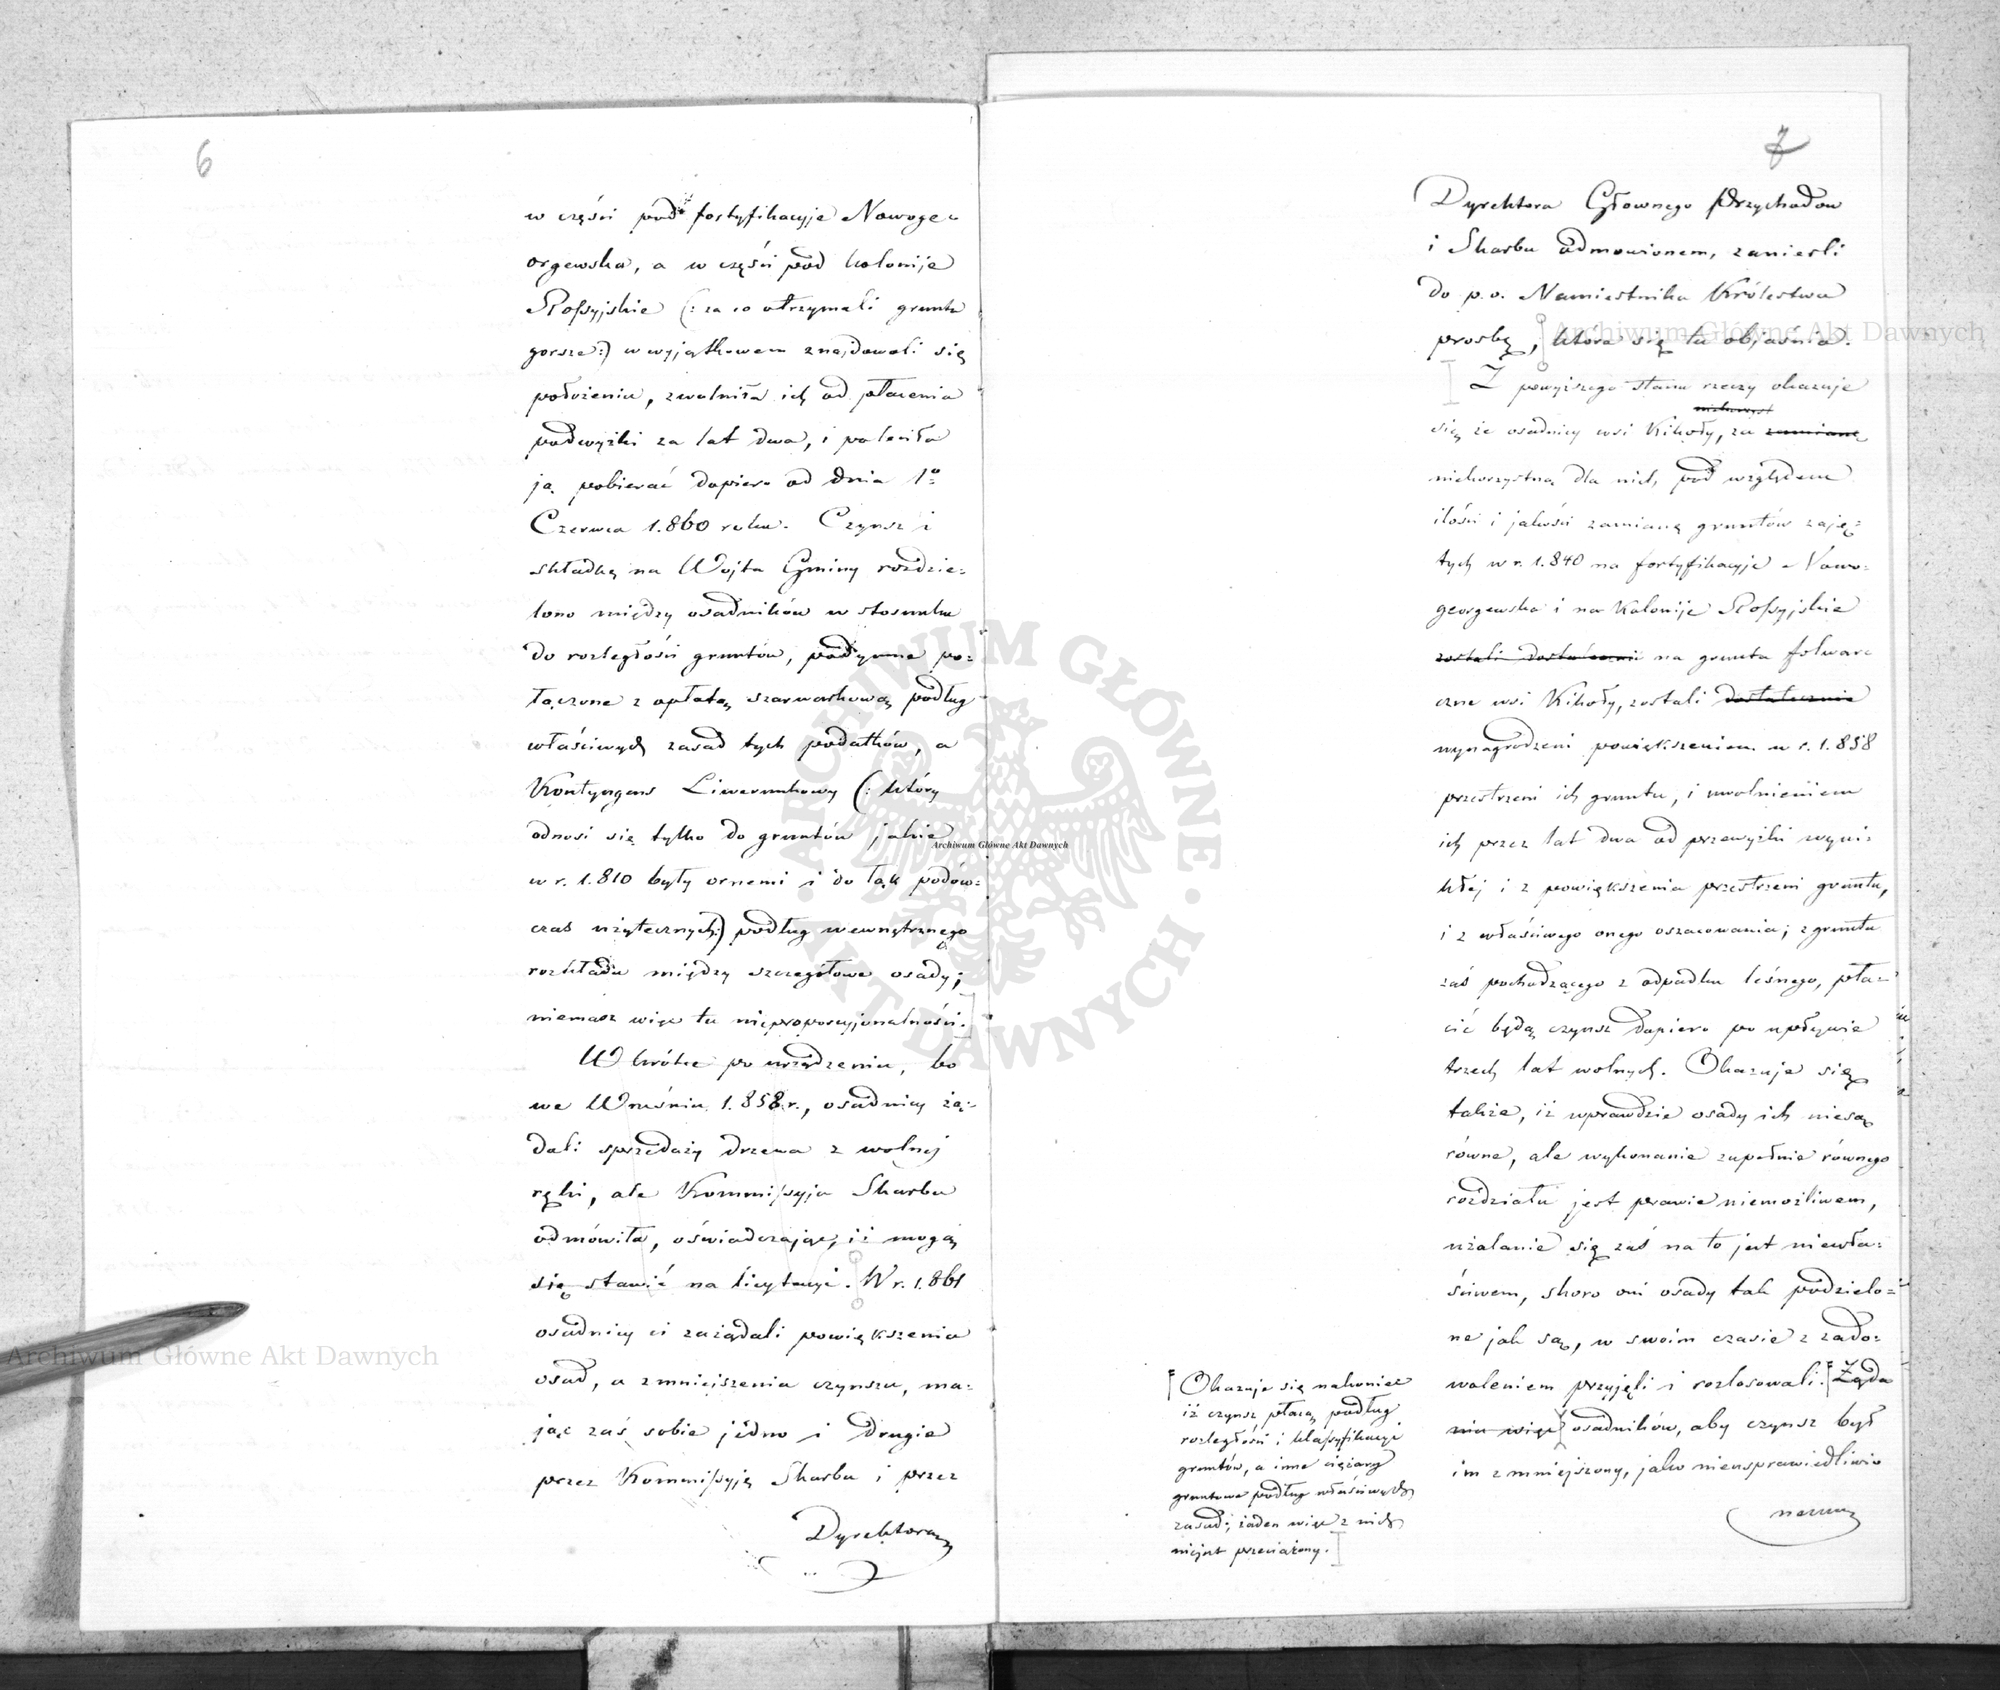 6
w części pod fortyfikacyje Nowoge-
orgewska, a w części pod kolonije
Rossyjskie (: za co otrzymali grunta
gorsze:) w wyjątkowem znajdowali się
położeniu, zwolniła ich od płacenia
podwyżki za lat dwa, i poleciła
ją pobierać dopiero od dnia 1o
Czerwca 1.860 roku. Czynsz i
składkę na Wojta Gminy rozdzie=
lono między osadników w stosunku
do rozległości gruntów, podymne po=
łączone z opłatą szarwarkową podług
właściwych zasad tych podatków, a
Kontyngens Liwerunkowy (: który
odnosi się tylko do gruntów jakie
w r. 1.810 były ornemi i do łąk podów=
czas użytecznych:) podług wewnętrznego
rozkładu między szczegółowe osady;
niemasz więc tu nieproporcyjonalności.
Wkrótce po urządzeniu, bo
we Wrześniu 1.858 r., osadnicy żą=
dali sprzedaży drzewa z wolnej
ręki, ale Kommissyja Skarbu
odmówiła, oświadczając, iż mogą
się stawić na licytacyi. W r. 1.861
osadnicy ci zażądali powiększenia
osad, a zmniejszenia czynszu, ma=
jąc zaś sobie jedno i drugie
przez Kommissyję Skarbu i przez
Dyrektora
7
Dyrektora Głownego Przychodow
i Skarbu odmowionem, zanieśli
do p.o. Namiestnika Królestwa
prosbę, która się tu objaśnia.
Z powyższego stanu rzeczy okazuje
się że osadnicy wsi Kikoły, za zamianę
niekorzystną dla nich, pod względem
ilości i jakości zamianę gruntów zaję=
tych w r. 1.840 na fortyfikacyje Nowo=
georgewska i na Kolonije Rossyjskie
zostali dostatecznie na grunta folwar=
czne wsi Kikoły, zostali dostatecznie
wynagrodzeni powiększeniem w r. 1.858
przestrzeni ich gruntu, i uwolnieniem
ich przez lat dwa od przewyżki wyni=
kłej i z powiększenia przestrzeni gruntu,
i z właściwego onego oszacowania; z gruntu
zaś pochodzącego z odpadku leśnego, pła=
cić będą czynsz dopiero po upływie
trzech lat wolnych. Okazuje się
także, iż wprawdzie osady ich niesą
równe, ale wykonanie zupełnie równego
rozdziału jest prawie niemożliwem,
użalanie się zaś na to jest niewła=
ściwem, skoro oni osady tak podzielo=
ne jak są, w swoim czasie z zado=
woleniem przyjęli i rozlosowali. Żąda
nie więc osadników, aby czynsz był
im zmniejszony, jako nieusprawiedliwio
Okazuje się nakoniec
iż czynsz płacą podług
rozległości i klassyfikacyi
gruntów, a inne ciężary
gruntowe podług właściwych
zasad; żaden więc z nich
niejest przeciążony.
Archiwum Główne Akt Dawnych
Archiwum Główne Akt Dawnych
Archiwum Główne Akt Dawnych
ARCHIWUM GŁÓWNE · AKT DAWNYCH ·